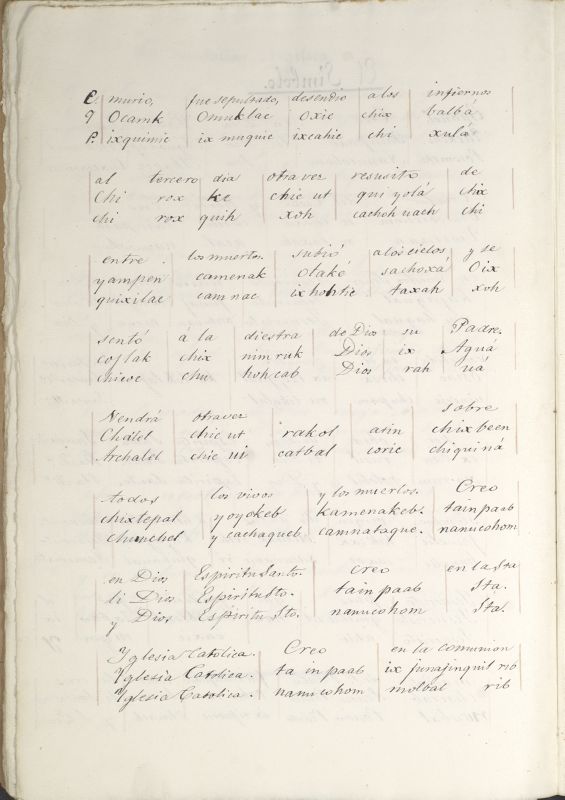 El Simbolo.
E. murio, fue sepultado, desendio a los infiernos
Q Ocamk Omuklac oxic chix balbá
P. ixquimic ix muquic ixcahic chi xulá
al tercero dia otra vez resusitó de
Chi rox ke chic ut qui yolá chix
chi rox quih xoh cachoh uach chi
entre los muertos. subió a los cielos y se
yampen camenak olaké sachoxá Oix
quixilac camnac ixhohtic taxah xoh
sentó á la diestra de Dios su Padre.
cojlak chix nim ruk Dios ix Aguá
chicoc chu hohcab Dios rah uá
Vendrá otravez sobre
Chálel chic ut rakol atin chixbeen
Archalel chic ui catbal coric chiquiná
todos los vivos y los muertos. Creo
chixtepal yoyokeb kamenakeb. tainpaab
chunchel y cachaqueb camnataque. nanucohom
en Dios Espiritu Santo. creo en la Sta
li Dios Espiritu Sto. tain paab Sta.
y Dios Espiritu Sto. nanucohom Sta.
Yglesia Catolica. Creo en la comunion
Yglesia Catolica. ta in paab ix junajinquil rib
Yglesia Catolica. nanucohom molbal rib